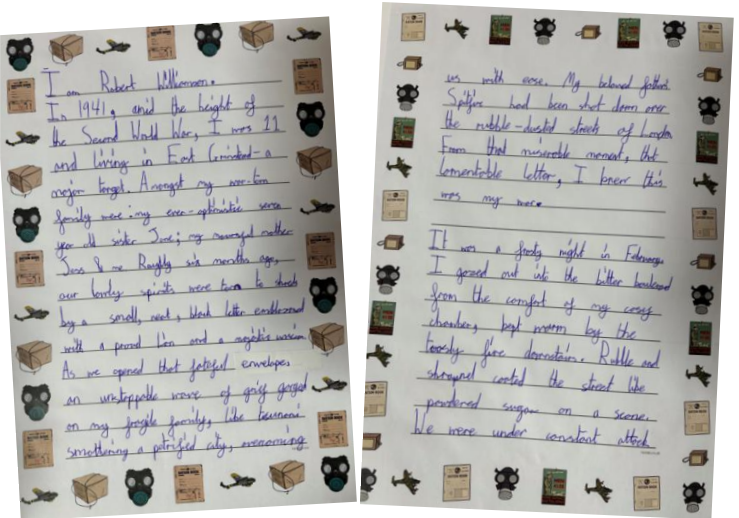 I am Robert Williamson.
In 1941, amid the height of
the Second World War, I was 11
and living in East Grinstead - a
major target. Amongst my war-torn
family were: my ever-optimistic seven
year old sister June; my mother
& me. Roughly six months ago,
our lovely spirits were torn to shreds
by a small, neat, black letter emblazoned
with a proud lion and a majestic unicorn.
As we opened that fateful envelope,
an unstoppable wave of grief gorged
on my fragile family, like tsunami
smothering a petrified city, overcoming
us with ease. My beloved father's
Spitfire had been shot down over
the rubble-dusted streets of London.
From that miserable moment, that
lamentable letter, I knew this
was my war.
It was a frosty night in February.
I gazed out into the bitter boulevard
from the comfort of my cosy
chamber, kept warm by the
toasty fire downstairs. Rubble and
shrapnel coated the street like
powdered sugar on a scone.
We were under constant attack